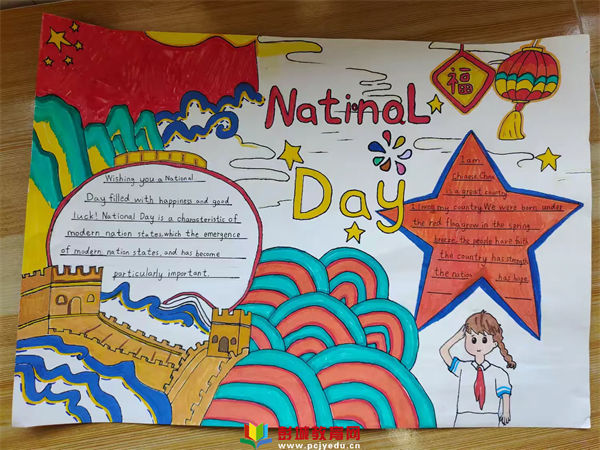 Natinal
Day
福
Wishing you a National
Day filled with happiness and good
luck! National Day is a characteristic of
modern nation states, which the emergence
of modern nation states, and has become
particularly important.
I am
Chinese. China
is a great country
I love my country. We were born under
the red flag, grow in the spring
breeze, the people have faith
the country has strength
the nation has hope
彭城教育网
www.pcjyedu.cn